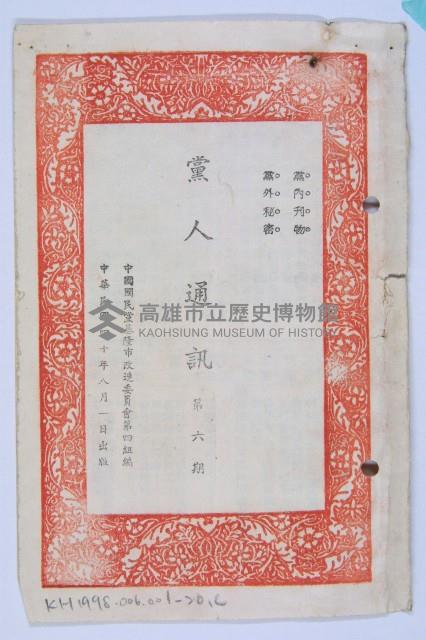 黨內刊物
黨外秘密
黨人通訊 第六期
中國國民黨基隆市改造委員會第四組編
中華民國四十年八月一日出版
高雄市立歷史博物館
KAOHSIUNG MUSEUM OF HISTORY
KH1998.006.001-20,C